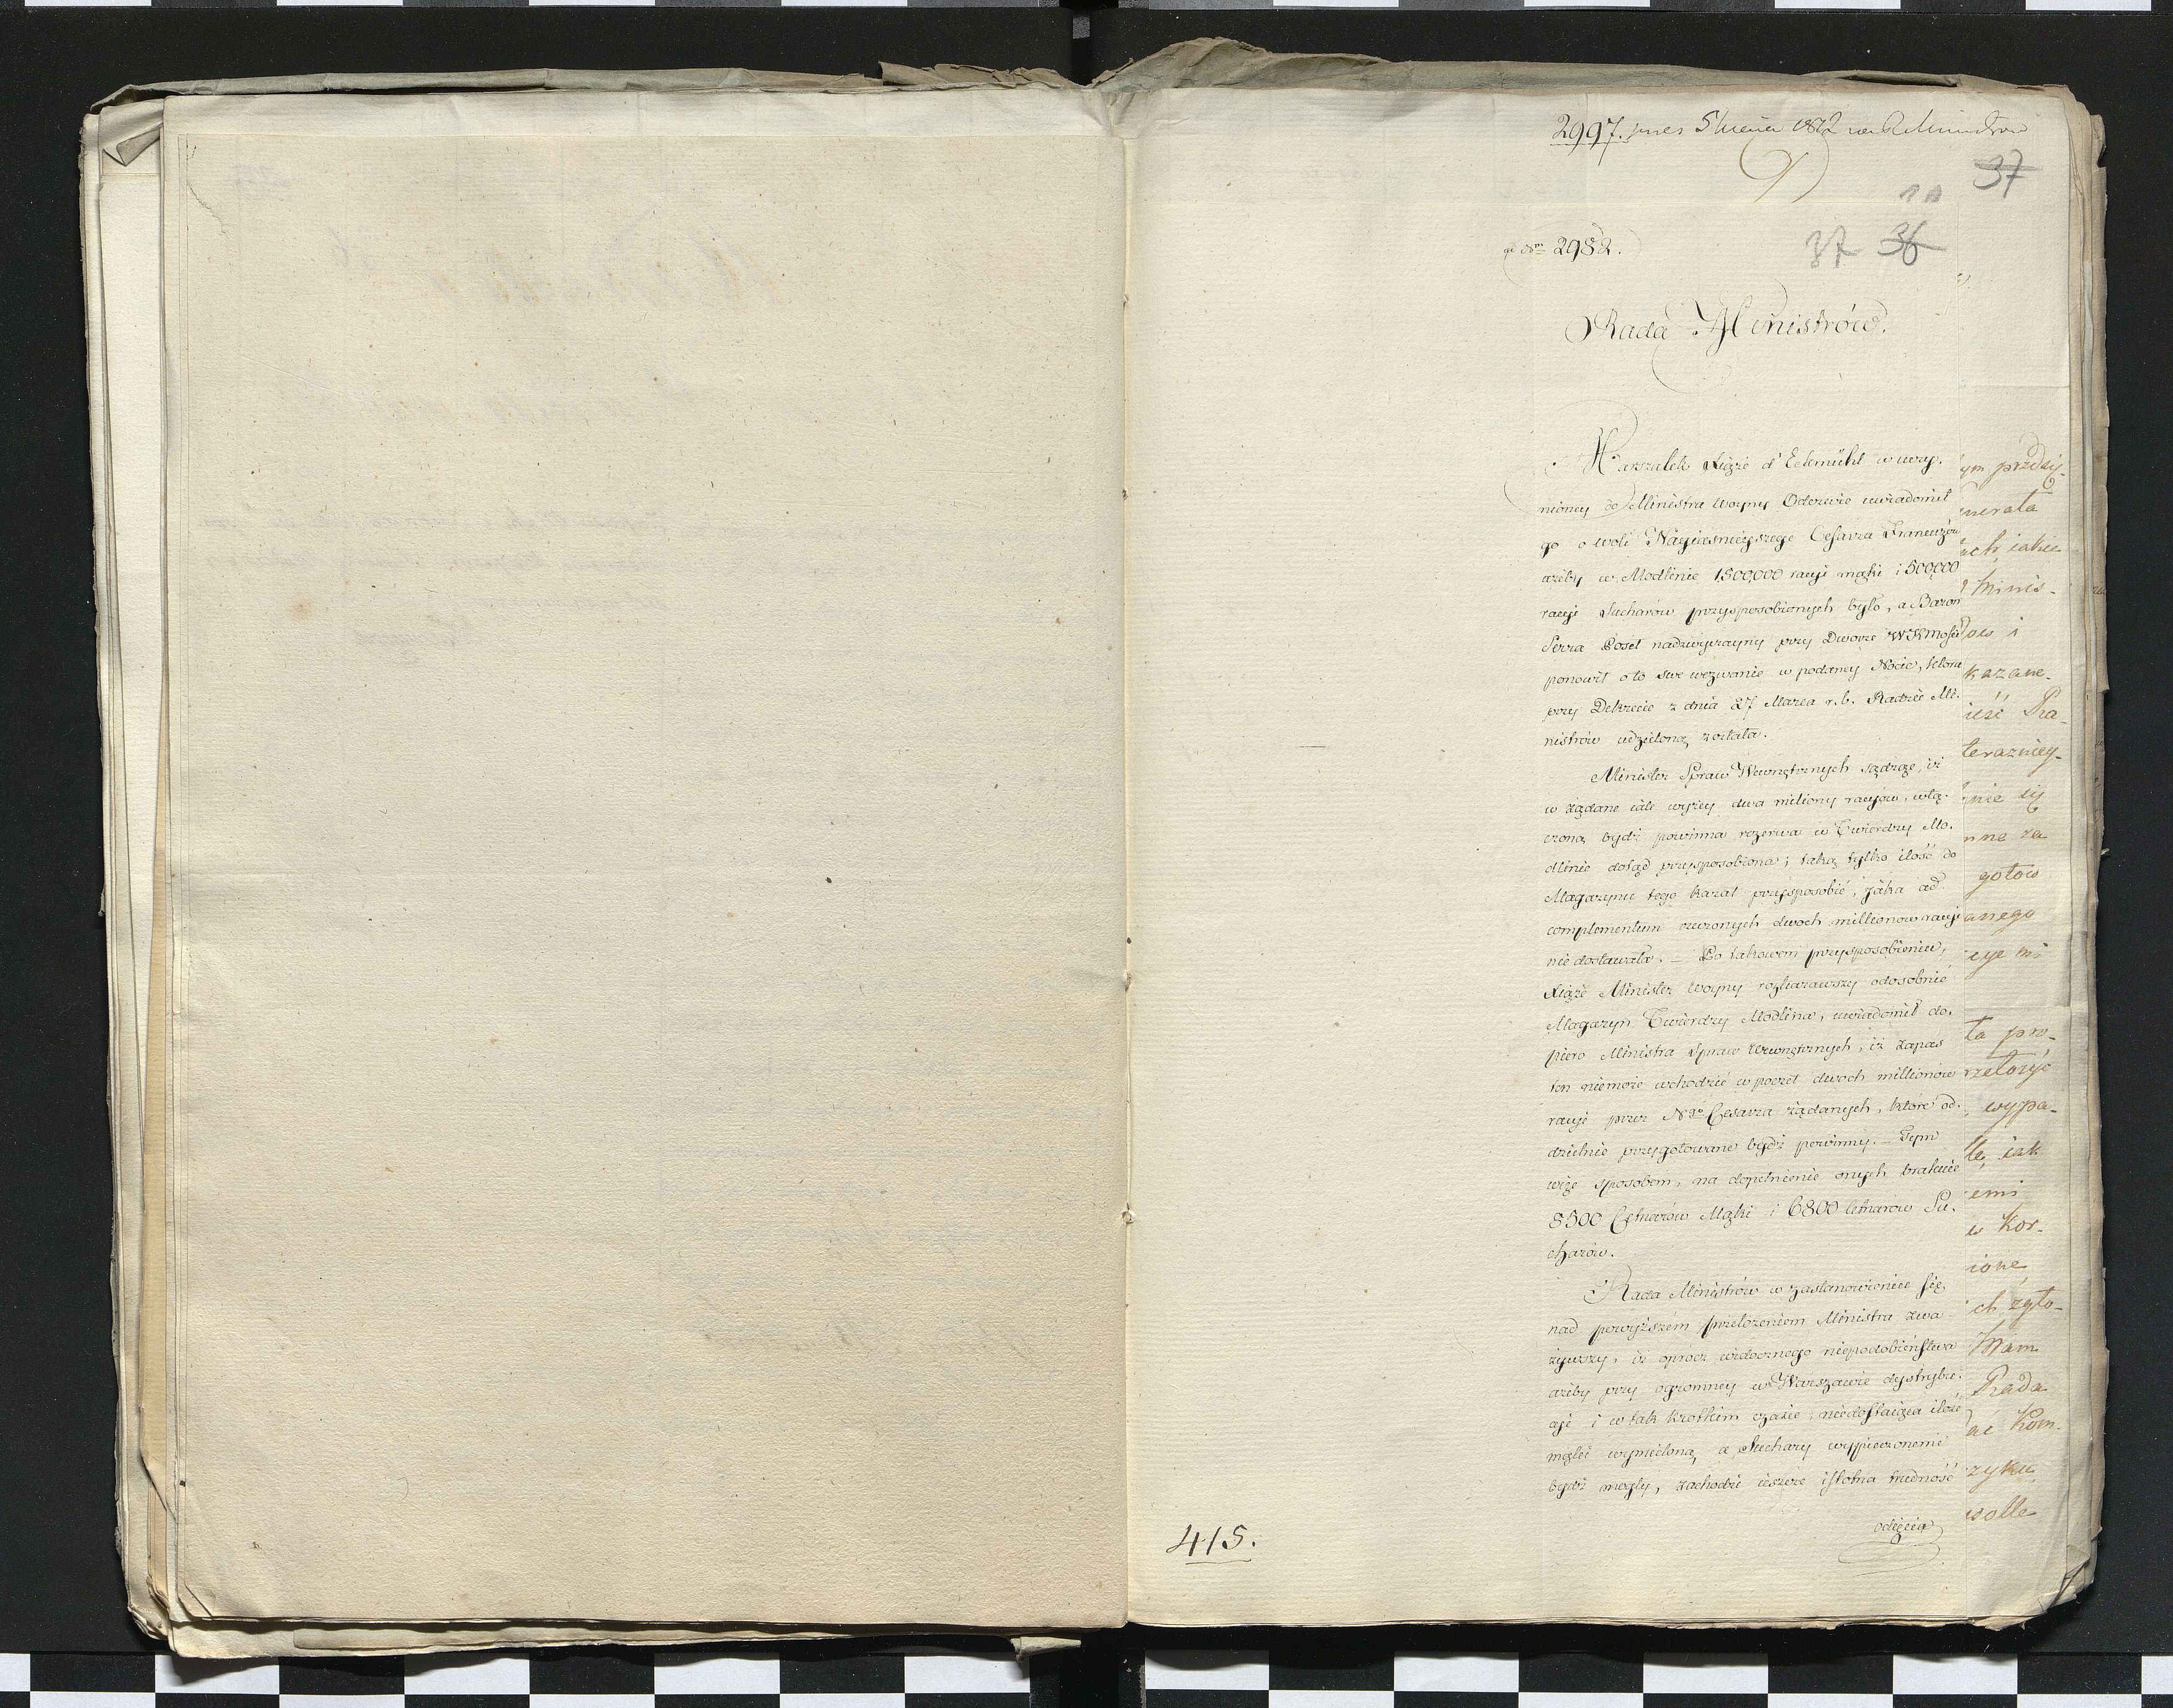 2997. 1812
37
37 36
ad Nm 2982.
Rada Ministrów.
Marszałek Xiąże d'Eckmühl w uczy-
nioney do Ministra Woyny Odezwie uwiadomił
go o woli Nayiaśnieyszego Cesarza Francuzów
ażeby w Modlinie 1,500,000 racyi mąki i 500,000
racyi Sucharów przysposobionych było, a Baron
Serra Poseł nadzwyczayny przy Dworze WKMości
ponowił o to swe wezwanie w podaney Nocie, która
przy Dekrecie z dnia 27 Marca r.b. Radzie Mi-
nistrów udzieloną została.
Minister Spraw Wewnętrznych sądząc, iż
w żądane iak wyżey dwa miliony racyów, włą-
czoną bydź powinna rezerwa w Twierdzy Mo-
dlinie dotąd przysposobiona; taką tylko ilość do
Magazynu tego kazał przysposobić, iaka ad
complementum rzeczonych dwoch millionow racyi
nie dostawała. — Po takowem przysposobieniu,
Xiąże Minister Woyny rozkazawszy odosobnić
Magazyn Twierdzy Modlina, uwiadomił do-
piero Ministra Spraw Wewnętrznych, iż zapas
ten niemoże wchodzić w poczet dwoch millionow
racyi przez Ngo Cesarza żądanych, które od-
dzielnie przygotowane bydź powinny. — Tym
więc sposobem, na dopełnienie onych brakuie
8500 Cetnarów Mąki i 6800 Cetnarów Su-
charów.
Rada Ministrów w zastanowieniu się
nad powyższém przełożeniem Ministra zwa-
żywszy, iż oprócz widocznego niepodobieństwa
ażeby przy ogromney w Warszawie dystrybu-
cyi i w tak krotkim czasie, niedostaiąca ilość
mąki wymieloną, a Suchary wypieczonemi
bydź mogły, zachodzi ieszcze istotna trudność
odięcia
415.
ym przedsię-
nerała
ach iakie
Minis-
ow i
kazane.
ieść Ra-
teraźniey-
nie się
nne za
gotow
anego
cye mi
ta pro-
rzełożyć
wypa-
le, iak
emi
w Kor-
ione
ch zgło-
Mam
Rada
ać Kom-
zyku
wolle